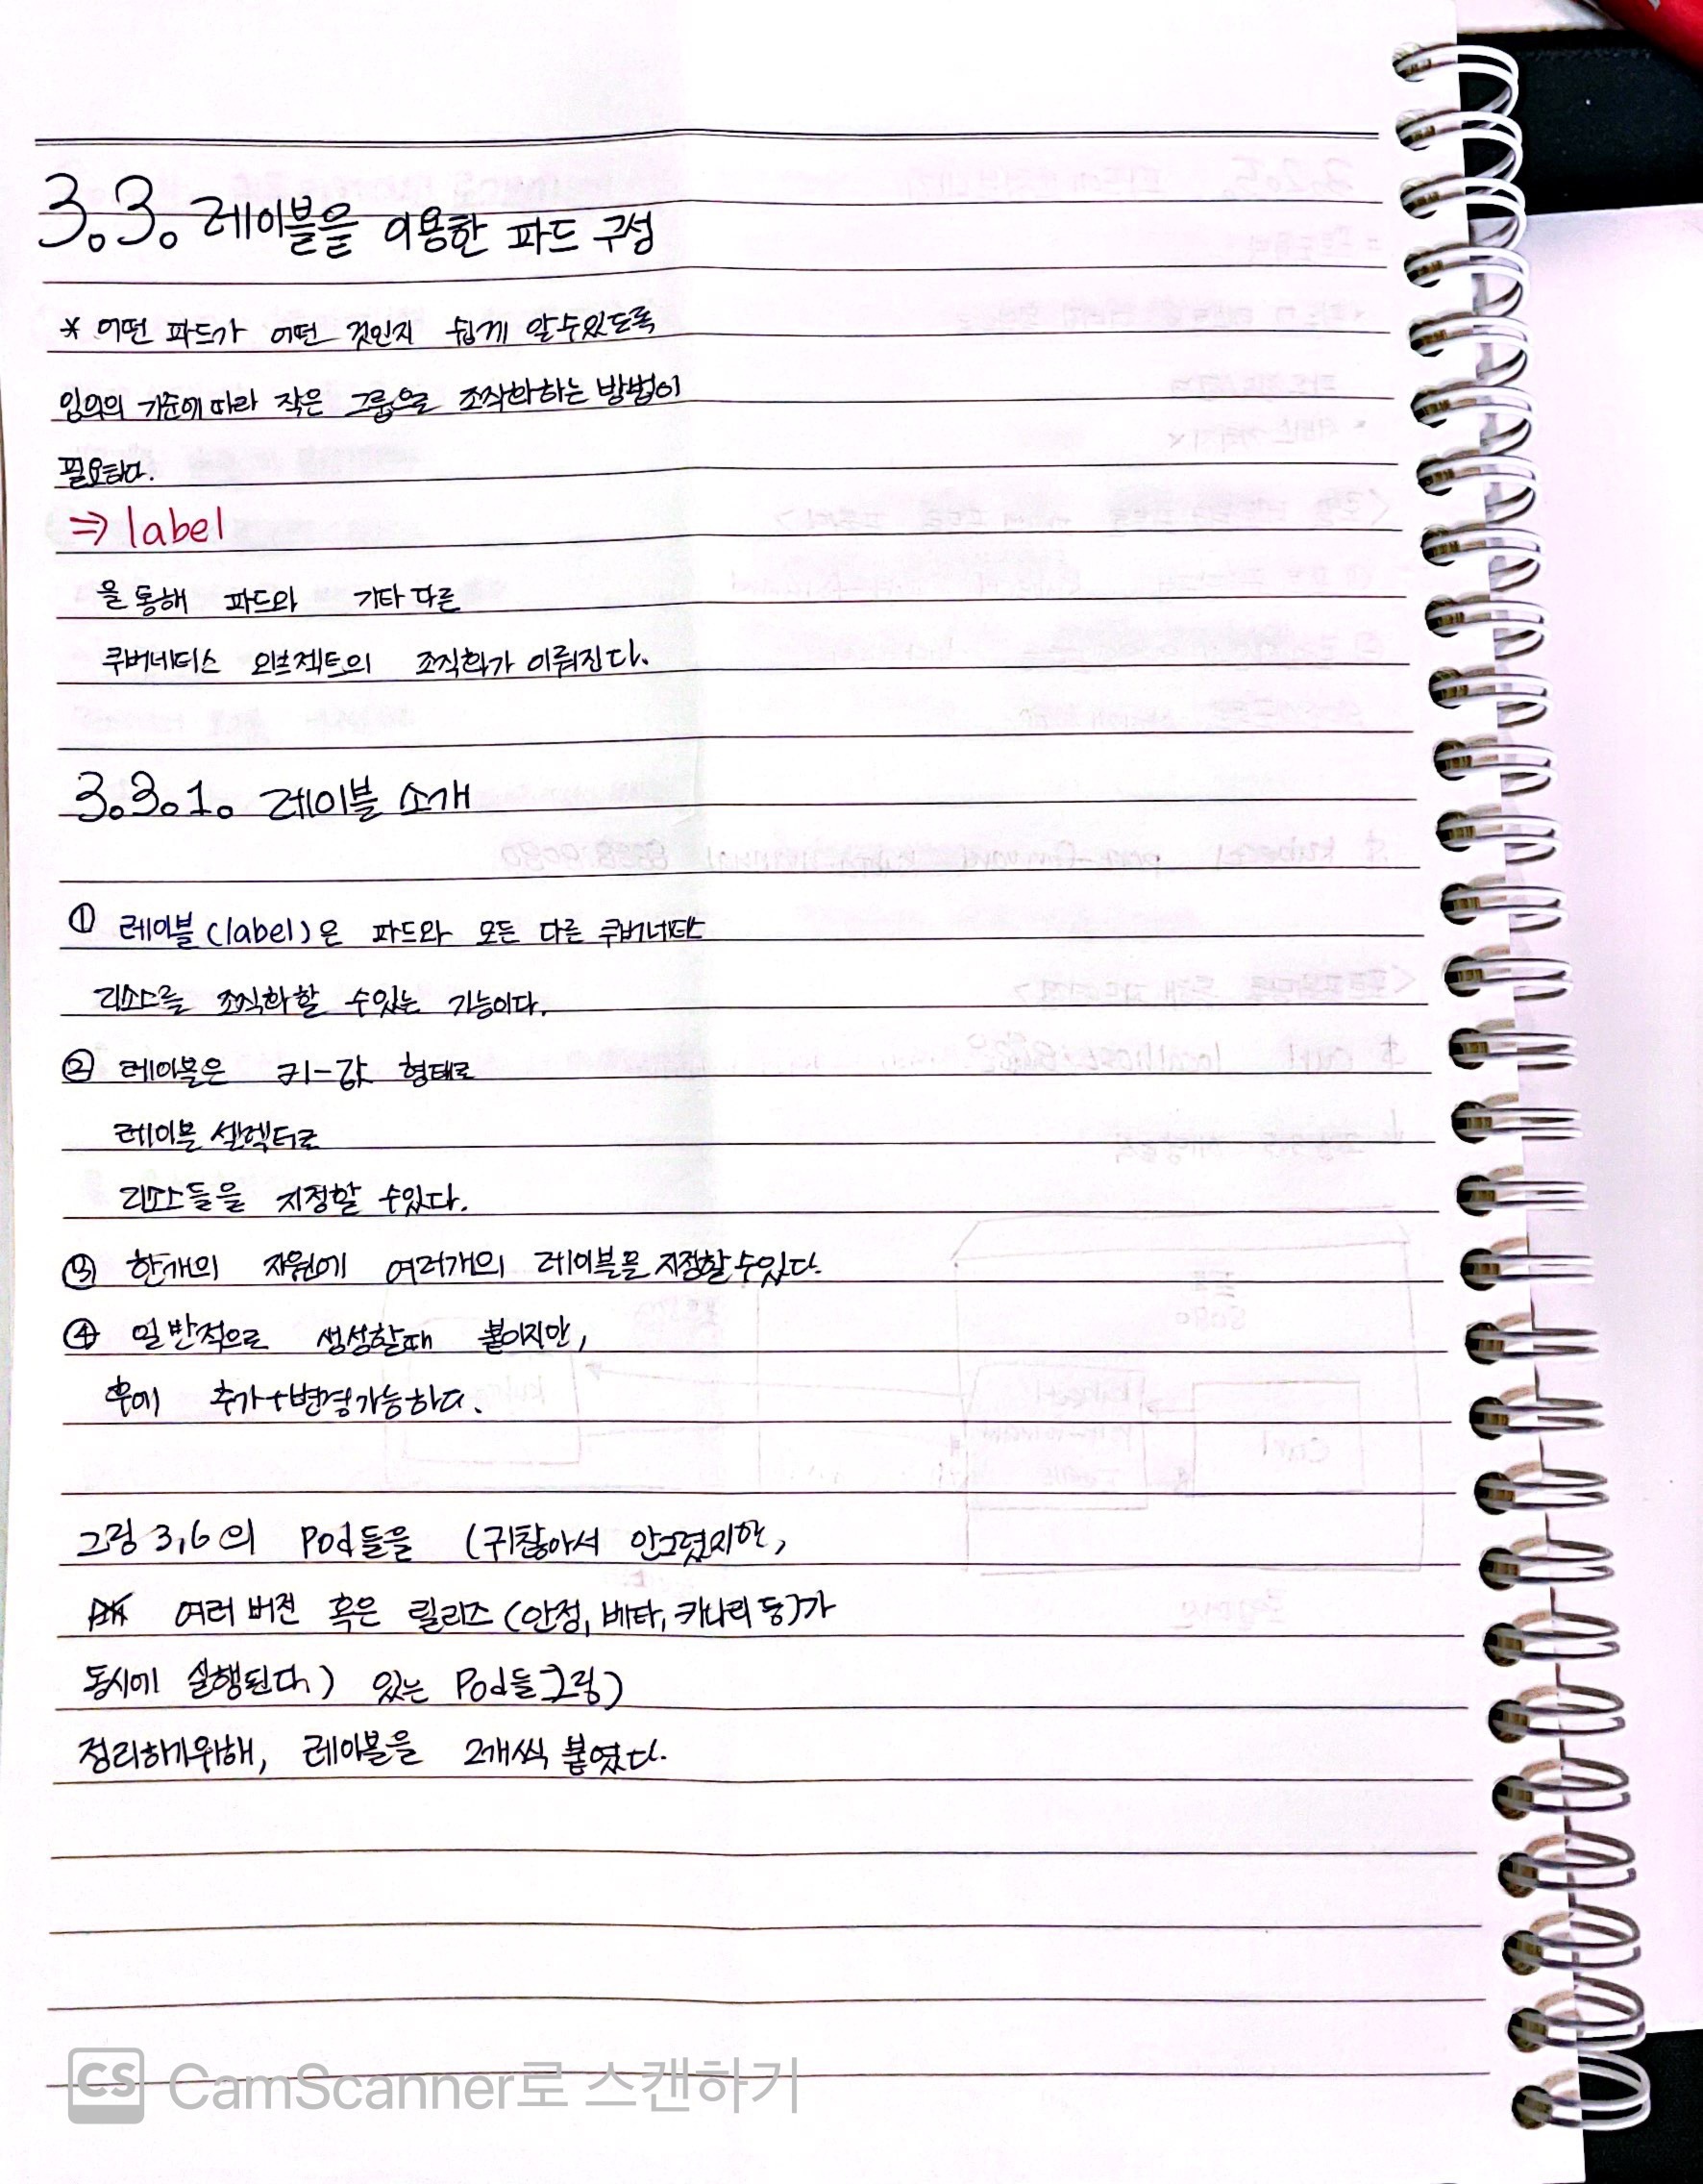 3.3. 레이블을 이용한 파드 구성
* 어떤 파드가 어떤 것인지 쉽게 알수있도록
임의의 기준에 따라 작은 그룹으로 조직화하는 방법이
필요하다.
⇒ label
을 통해 파드와 기타 다른
쿠버네티스 오브젝트의 조직화가 이뤄진다.
3.3.1. 레이블 소개
① 레이블(label)은 파드와 모든 다른 쿠버네티스
리소스를 조직화할 수있는 기능이다.
② 레이블은 키-값 형태로
레이블 셀렉터로
리소스들을 지정할 수있다.
③ 한개의 자원에 여러개의 레이블을 지정할수있다.
④ 일반적으로 생성할때 붙이지만,
후에 추가+변경가능하다.
그림 3,6의 Pod들을 (귀찮아서 안그렸지만,
여러 버전 혹은 릴리즈(안정, 베타, 카나리 등)가
동시에 실행된다) 있는 Pod들그림)
정리하기위해, 레이블을 2개씩 붙였다.
CS CamScanner로 스캔하기